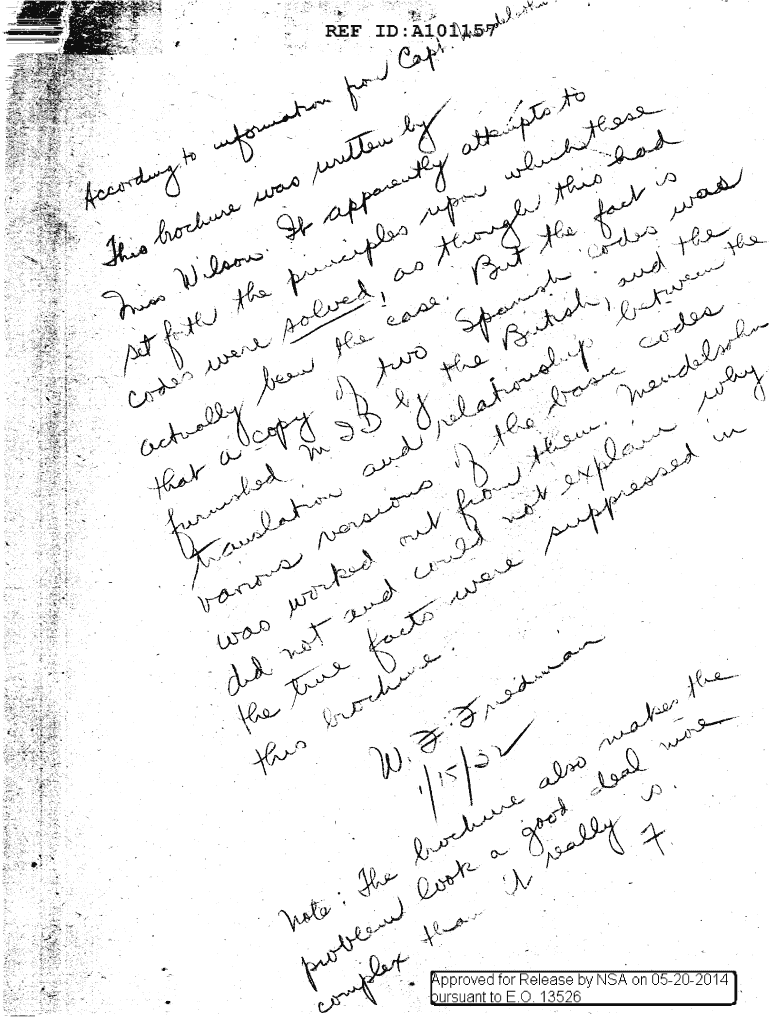 REF ID:A101157
According to information from Capt. Mendelsohn
This brochure was written by
Miss Wilson. It apparently attempts to
set forth the principles upon which these
codes were solved, as though this had
actually been the case! But the fact is
that a copy of two Spanish codes was
furnished MID by the British, and the
translation and relationship between the
various versions of the basic codes
was worked out from them. Mendelsohn
did not and could not explain why
the true facts were suppressed in
this brochure.
W. F. Friedman
1/15/22
Note: The brochure also makes the
problem look a good deal more
complex than it really is.
F
Approved for Release by NSA on 05-20-2014
pursuant to E.O. 13526